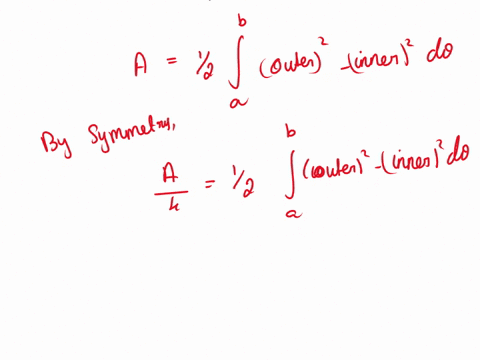 A = 1/2 ∫_a^b (outer)² - (inner)² dθ
By Symmetry,
A/4 = 1/2 ∫_a^b (outer)² - (inner)² dθ